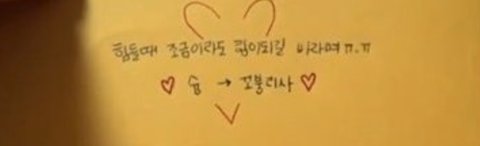 힘들때 조금이라도 힘이되길 바라며 ㅠ.ㅠ
♡ 숩 → 꼬불리사 ♡